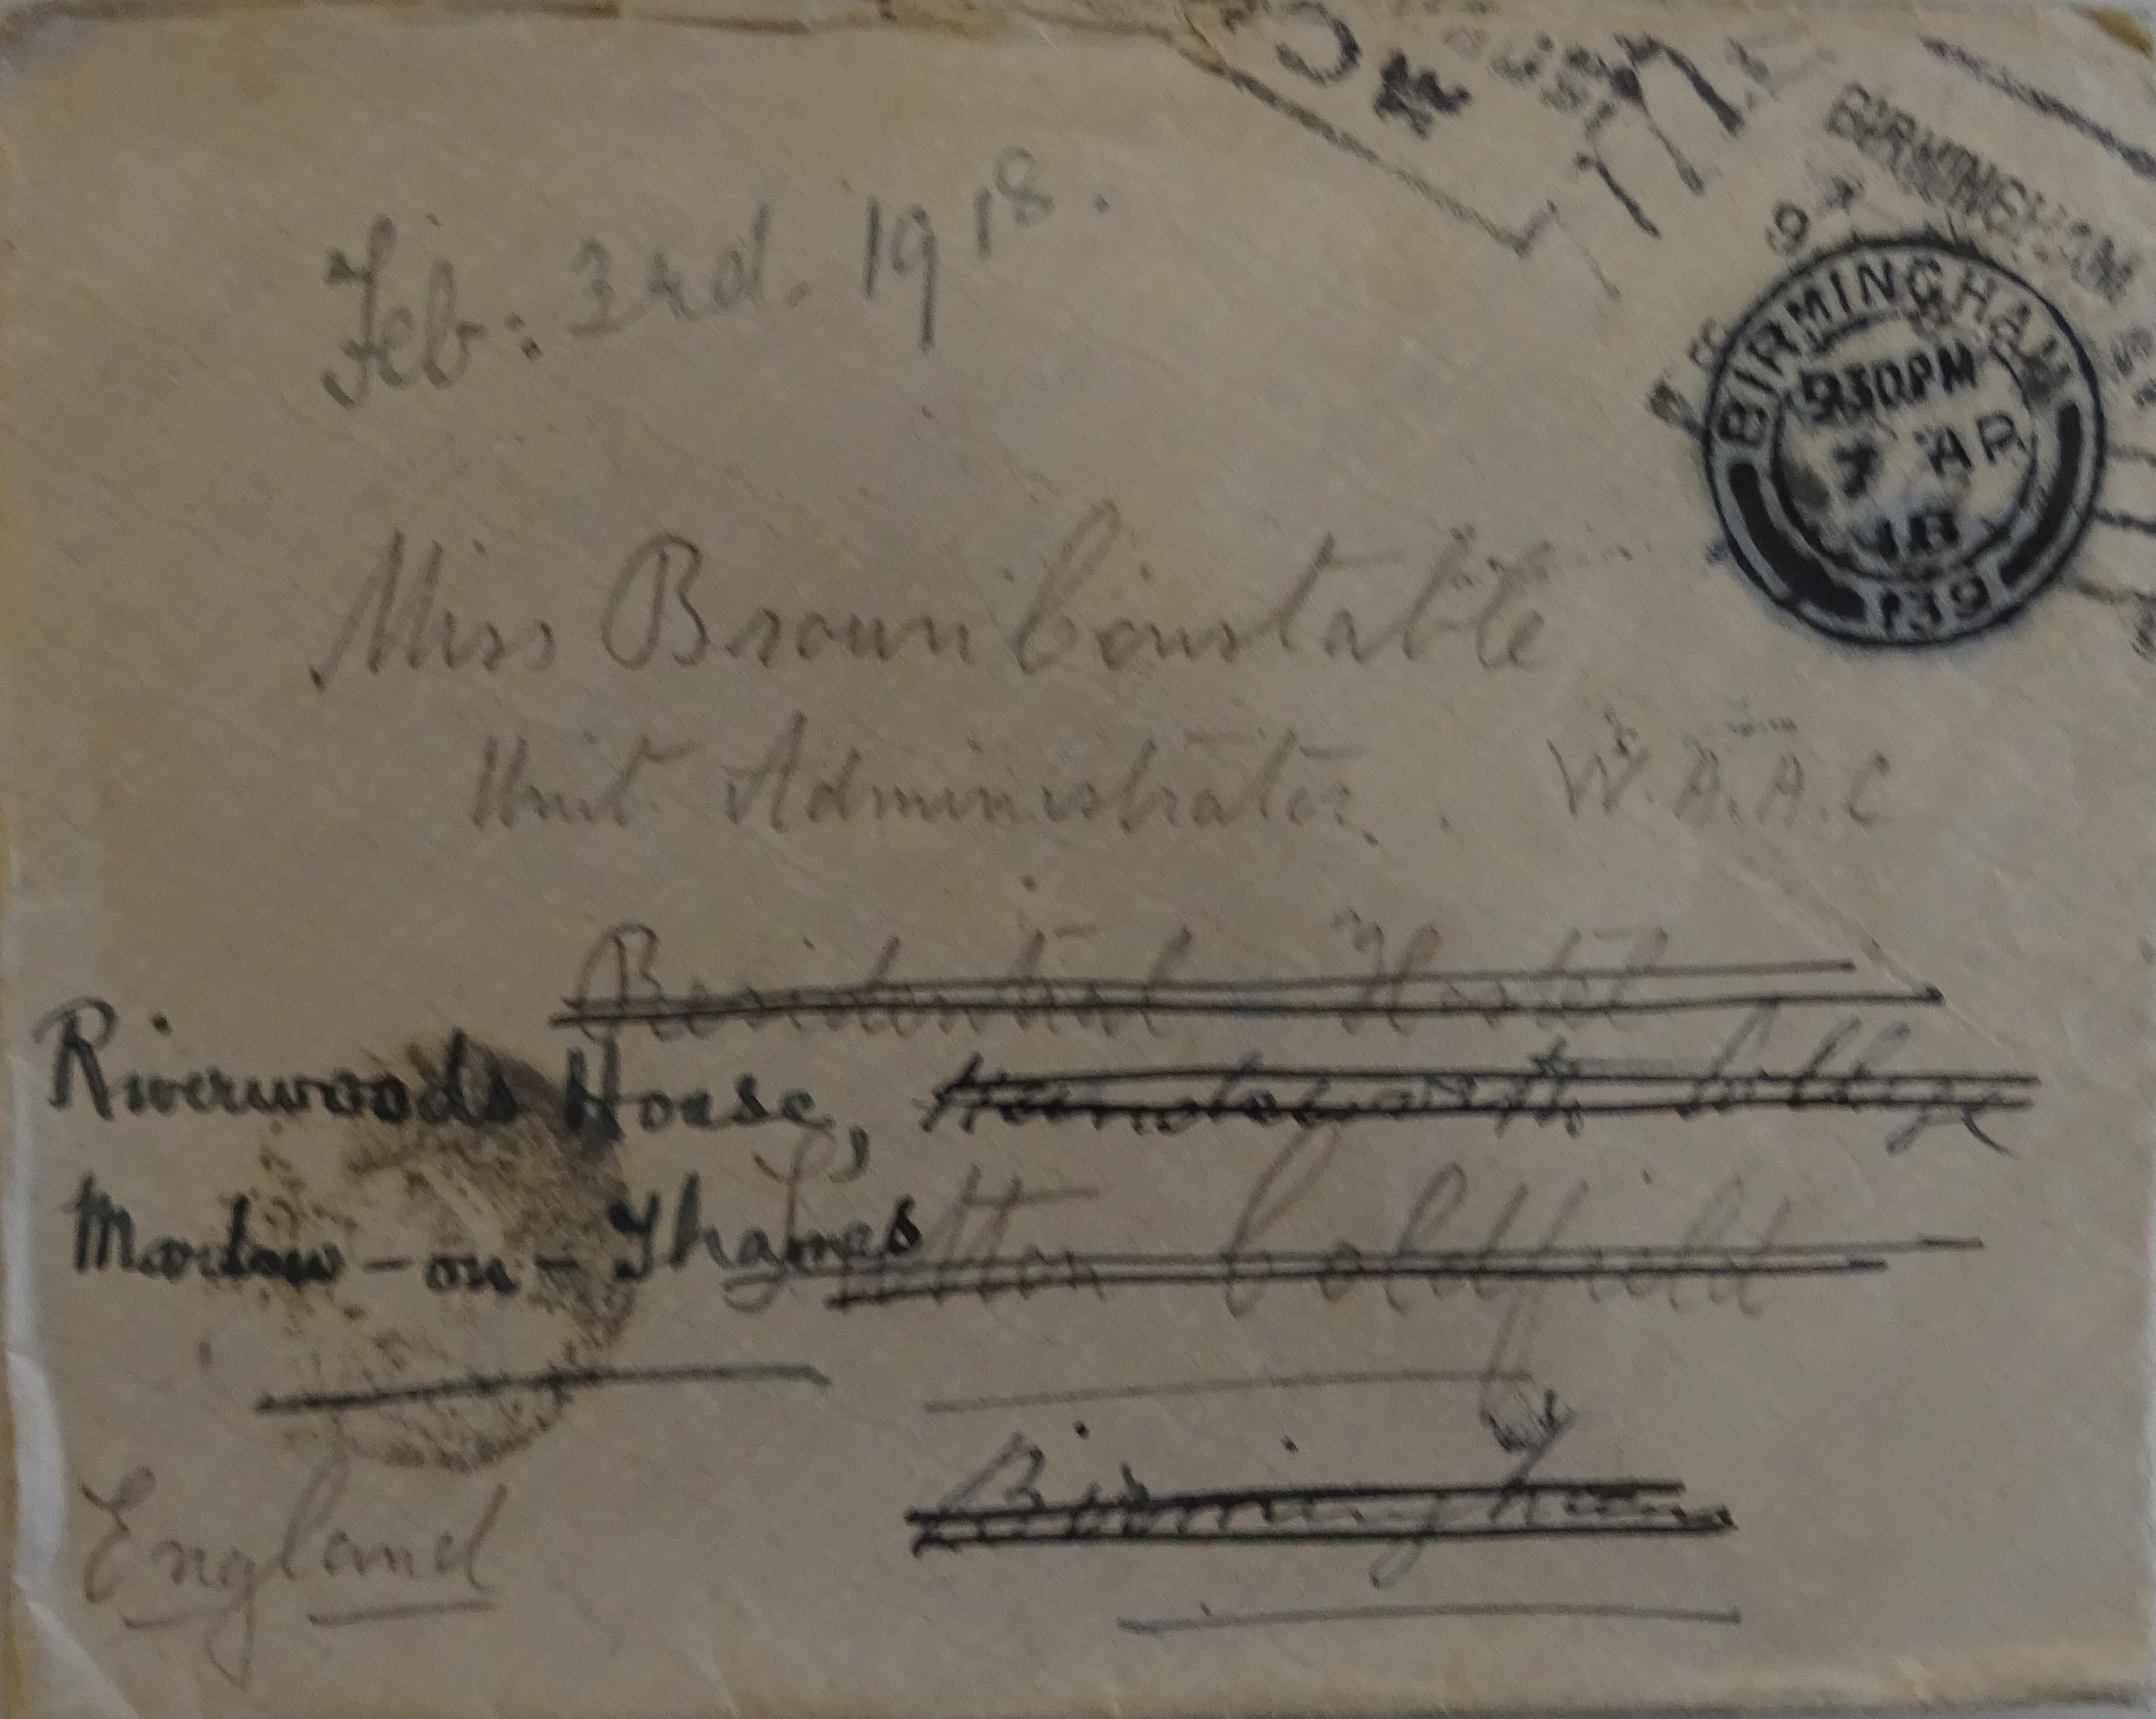 BIRMINGHAM
BIRMINGHAM
930PM
7 AP
18
139
Feb: 3rd. 1918.
Miss Brown Constable
Unit Administrator. W.A.A.C
Residential Hostel
Riverwoods House, Handsworth College
Marlow-on-Thames Sutton Coldfield
by
Birmingham
England